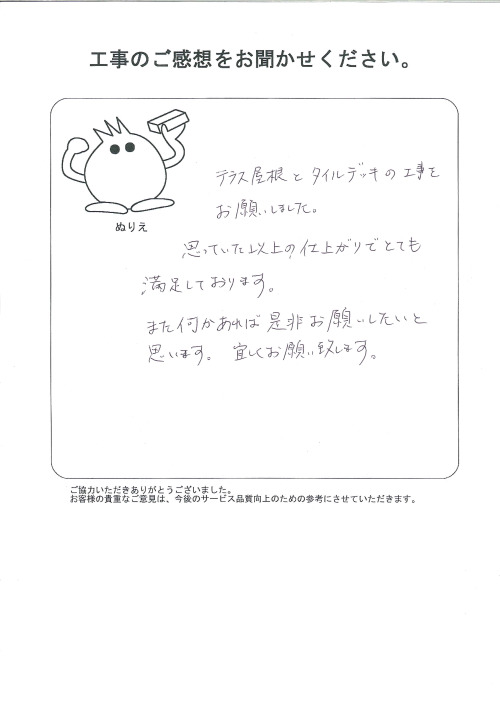 工事のご感想をお聞かせください。
ぬりえ
テラス屋根とタイルデッキの工事を
お願いしました。
思っていた以上の仕上がりでとても
満足しております。
また何かあれば是非お願いしたいと
思います。 宜しくお願い致します。
ご協力いただきありがとうございました。
お客様の貴重なご意見は、今後のサービス品質向上のための参考にさせていただきます。